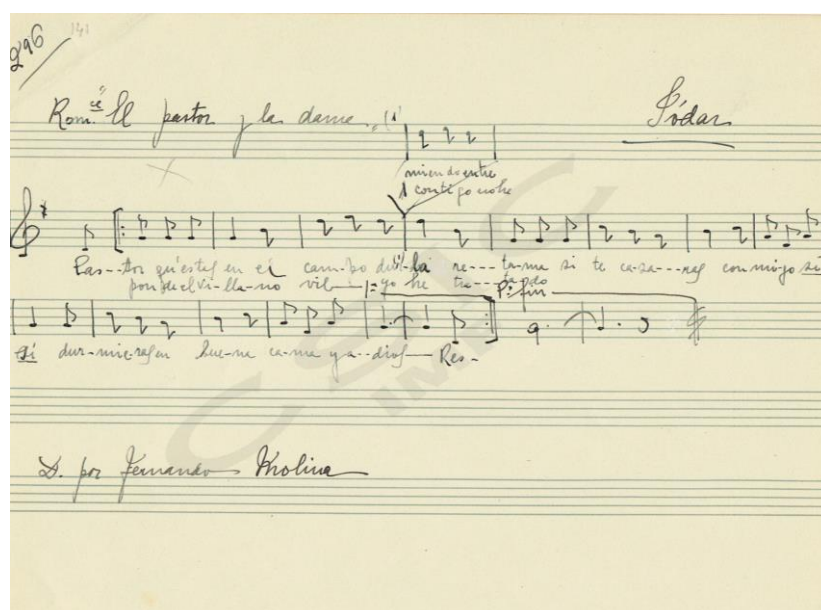 296 141
Rom.ce "El pastor y la dama" (1) Jódar
miendo entre
1 contigo noho
Pas--tor qu'estes en el cam-po de la re---ta-ma si te casa---ras con mi-go si
pon de el vi-lla-no vil yo he tra-ta-do
1ª Pª fin
si dur-mie-ras en bue-na ca-ma y a-dios- Res-
D. por Fernando Molina
CSIC
IMF